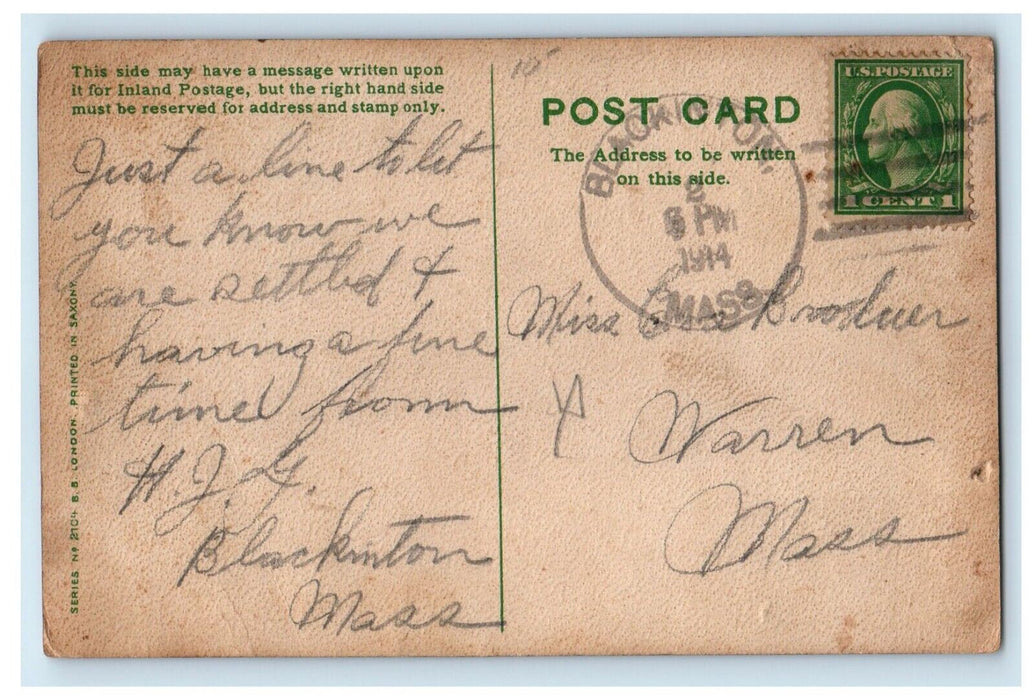 This side may have a message written upon
it for Inland Postage, but the right hand side
must be reserved for address and stamp only.
Just a line to let
you know we
are settled &
having a fine
time from
H. J. G.
Blackinton
Mass
SERIES No 2104 B.B. LONDON. PRINTED IN SAXONY.
POST CARD
The Address to be written
on this side.
U.S. POSTAGE
1 CENT 1
BLACKINTON,
6 PM
1914
MASS.
Miss
Warren
Mass